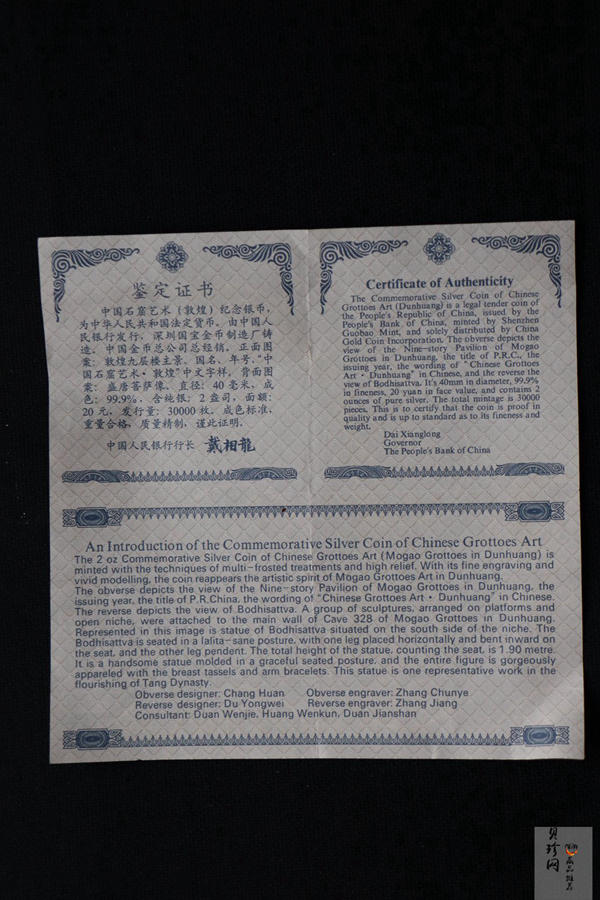 鉴定证书
中国石窟艺术（敦煌）纪念银币，
为中华人民共和国法定货币。由中国人
民银行发行，深圳国宝金币制造厂铸
造。中国金币总公司总经销。正面图
案：敦煌九层楼主景。国名、年号、“中
国石窟艺术·敦煌”中文字样，背面图
案：盛唐菩萨像。直径：40毫米，成
色：99.9%．含纯银：2盎司，面额：
20元，发行量：30000枚。成色标准，
重量合格，质量精制，谨此证明。
中国人民银行行长 戴相龍
Certificate of Authenticity
The Commemorative Silver Coin of Chinese
Grottoes Art (Dunhuang) is a legal tender coin of
the People's Republic of China, issued by the
People's Bank of China, minted by Shenzhen
Guobao Mint, and solely distributed by China
Gold Coin Incorporation. The obverse depicts the
view of the Nine-story Pavilion of Mogao
Grottoes in Dunhuang, the title of P.R.C., the
issuing year, the wording of "Chinese Grottoes
Art·Dunhuang" in Chinese, and the reverse the
view of Bodhisattva. It's 40mm in diameter, 99.9%
in fineness, 20 yuan in face value, and contains 2
ounces of pure silver. The total mintage is 30000
pieces. This is to certify that the coin is proof in
quality and is up to standard as to its fineness and
weight.
Dai Xianglong
Governor
The People's Bank of China
An Introduction of the Commemorative Silver Coin of Chinese Grottoes Art
The 2 oz Commemorative Silver Coin of Chinese Grottoes Art (Mogao Grottoes in Dunhuang) is
minted with the techniques of multi-frosted treatments and high relief. With its fine engraving and
vivid modelling, the coin reappears the artistic spirit of Mogao Grottoes Art in Dunhuang.
The obverse depicts the view of the Nine-story Pavilion of Mogao Grottoes in Dunhuang, the
issuing year, the title of P.R.China, the wording of "Chinese Grottoes Art·Dunhuang" in Chinese.
The reverse depicts the view of Bodhisattva. A group of sculptures, arranged on platforms and
open niche, were attached to the main wall of Cave 328 of Mogao Grottoes in Dunhuang.
Represented in this image is statue of Bodhisattva situated on the south side of the niche. The
Bodhisattva is seated in a lalita-sane posture, with one leg placed horizontally and bent inward on
the seat, and the other leg pendent. The total height of the statue, counting the seat, is 1.90 metre.
It is a handsome statue molded in a graceful seated posture, and the entire figure is gorgeously
appareled with the breast tassels and arm bracelets. This statue is one representative work in the
flourishing of Tang Dynasty.
Obverse designer: Chang Huan Obverse engraver: Zhang Chunye
Reverse designer: Du Yongwei Reverse engraver: Zhang Jiang
Consultant: Duan Wenjie, Huang Wenkun, Duan Jianshan
贝珍网